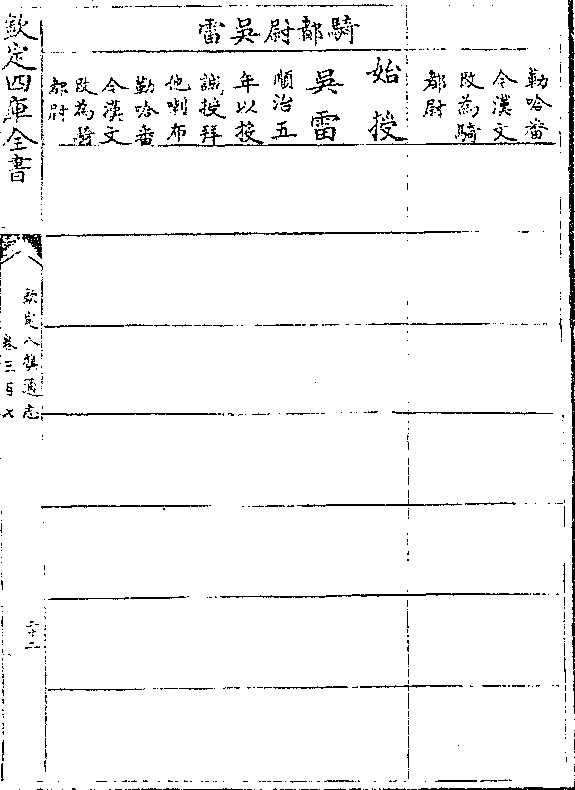 勒哈番
今漢文
改為騎
都尉
騎都尉吳雷
始授
吳雷
順治五
年以投
誠授拜
他喇布
勒哈番
今漢文
改為騎
都尉
欽定四庫全書
欽定八旗通志
卷三百七
二十二